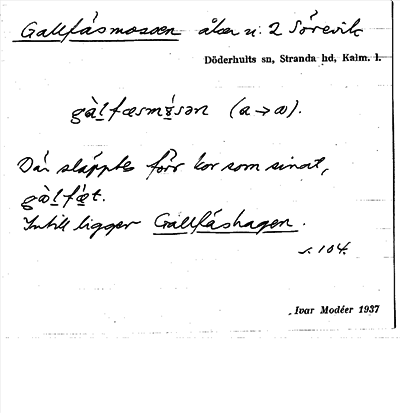 Gallfäsmossen åker u. 2 Sörevik
Döderhults sn, Stranda hd, Kalm. l.
gàl̠fæsmó̠sən (a→ɑ).
Där släpptes förr kor som sinat,
gàl̠fǽt.
Intill ligger Gallfäshagen.
s. 104.
Ivar Modéer 1937